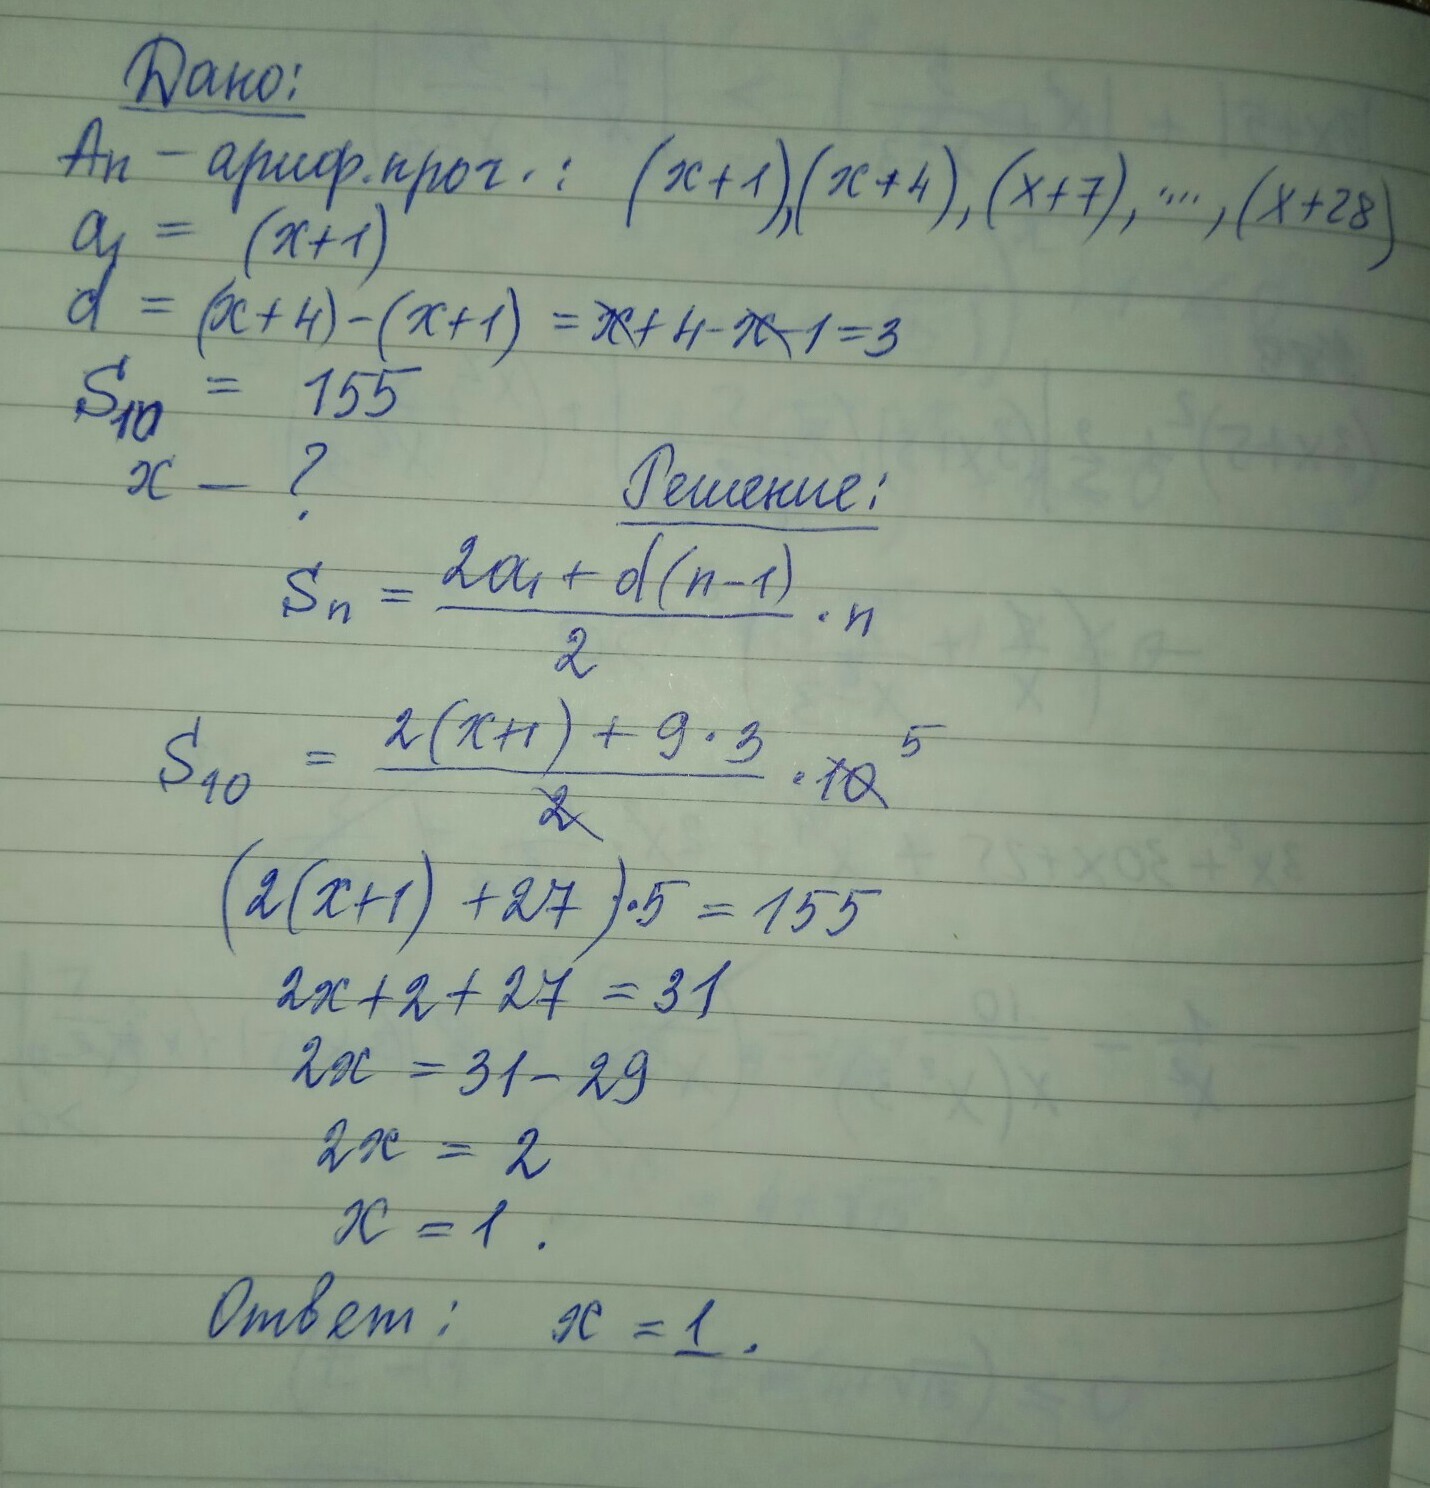 Дано:
Aп – ариф. прог.: (x+1),(x+4),(x+7),...,(x+28)
a₁ = (x+1)
d = (x+4)-(x+1) = x+4-x-1=3
S₁₀ = 155
x – ?
Решение:
Sₙ = (2a₁ + d(n-1))/2 · n
S₁₀ = (2(x+1) + 9·3)/2 · 10 5
(2(x+1) +27)·5 = 155
2x+2+27 = 31
2x = 31-29
2x = 2
x = 1.
Ответ: x = 1.